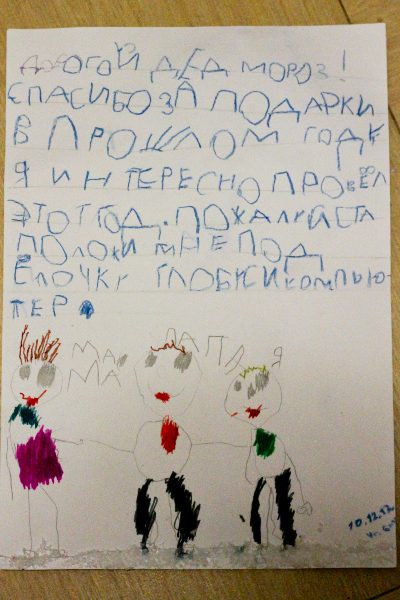 ДОРОГОЙ ДЕД МОРОЗ!
СПАСИБО ЗА ПОДАРКИ
В ПРОШЛОМ ГОДУ
Я ИНТЕРЕСНО ПРОВЁЛ
ЭТОТ ГОД. ПОЖАЛУЙСТА
ПОЛОЖИ МНЕ ПОД
ЁЛОЧКУ ГЛОБУС И КОМПЬЮ-
ТЕР.
МА-
МА
ПАПА
Я
10.12.12